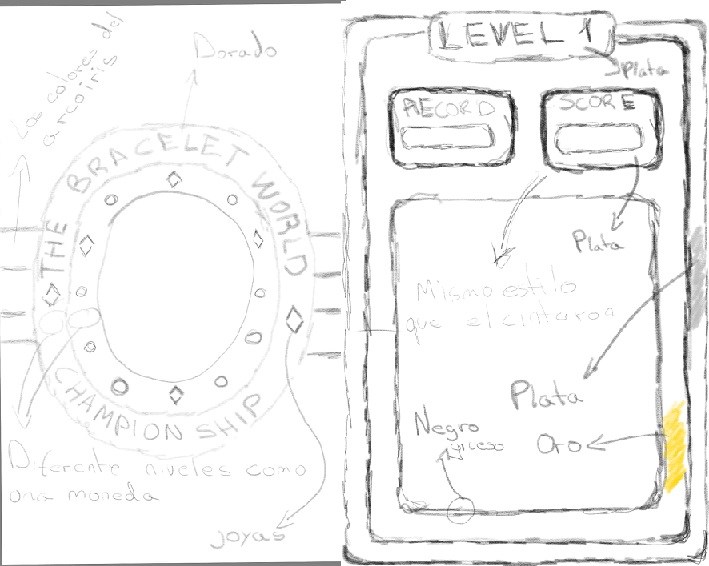 Los colores del
arcoiris
Dorado
THE BRACELET WORLD
CHAMPIONSHIP
Diferente niveles como
una moneda
joyas
LEVEL 1
Plata
RECORD
SCORE
Plata
Mismo estilo
que el cinturon
Plata
Negro
grueso
Oro